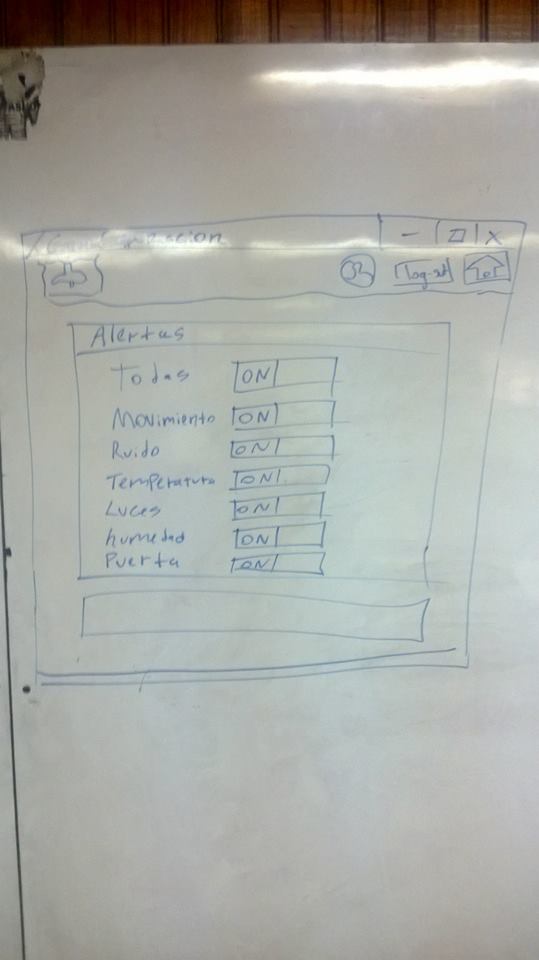 Configuracion
log-out
Alertas
Todas ON
Movimiento ON
Ruido ON
Temperatura ON
Luces ON
humedad ON
Puerta ON